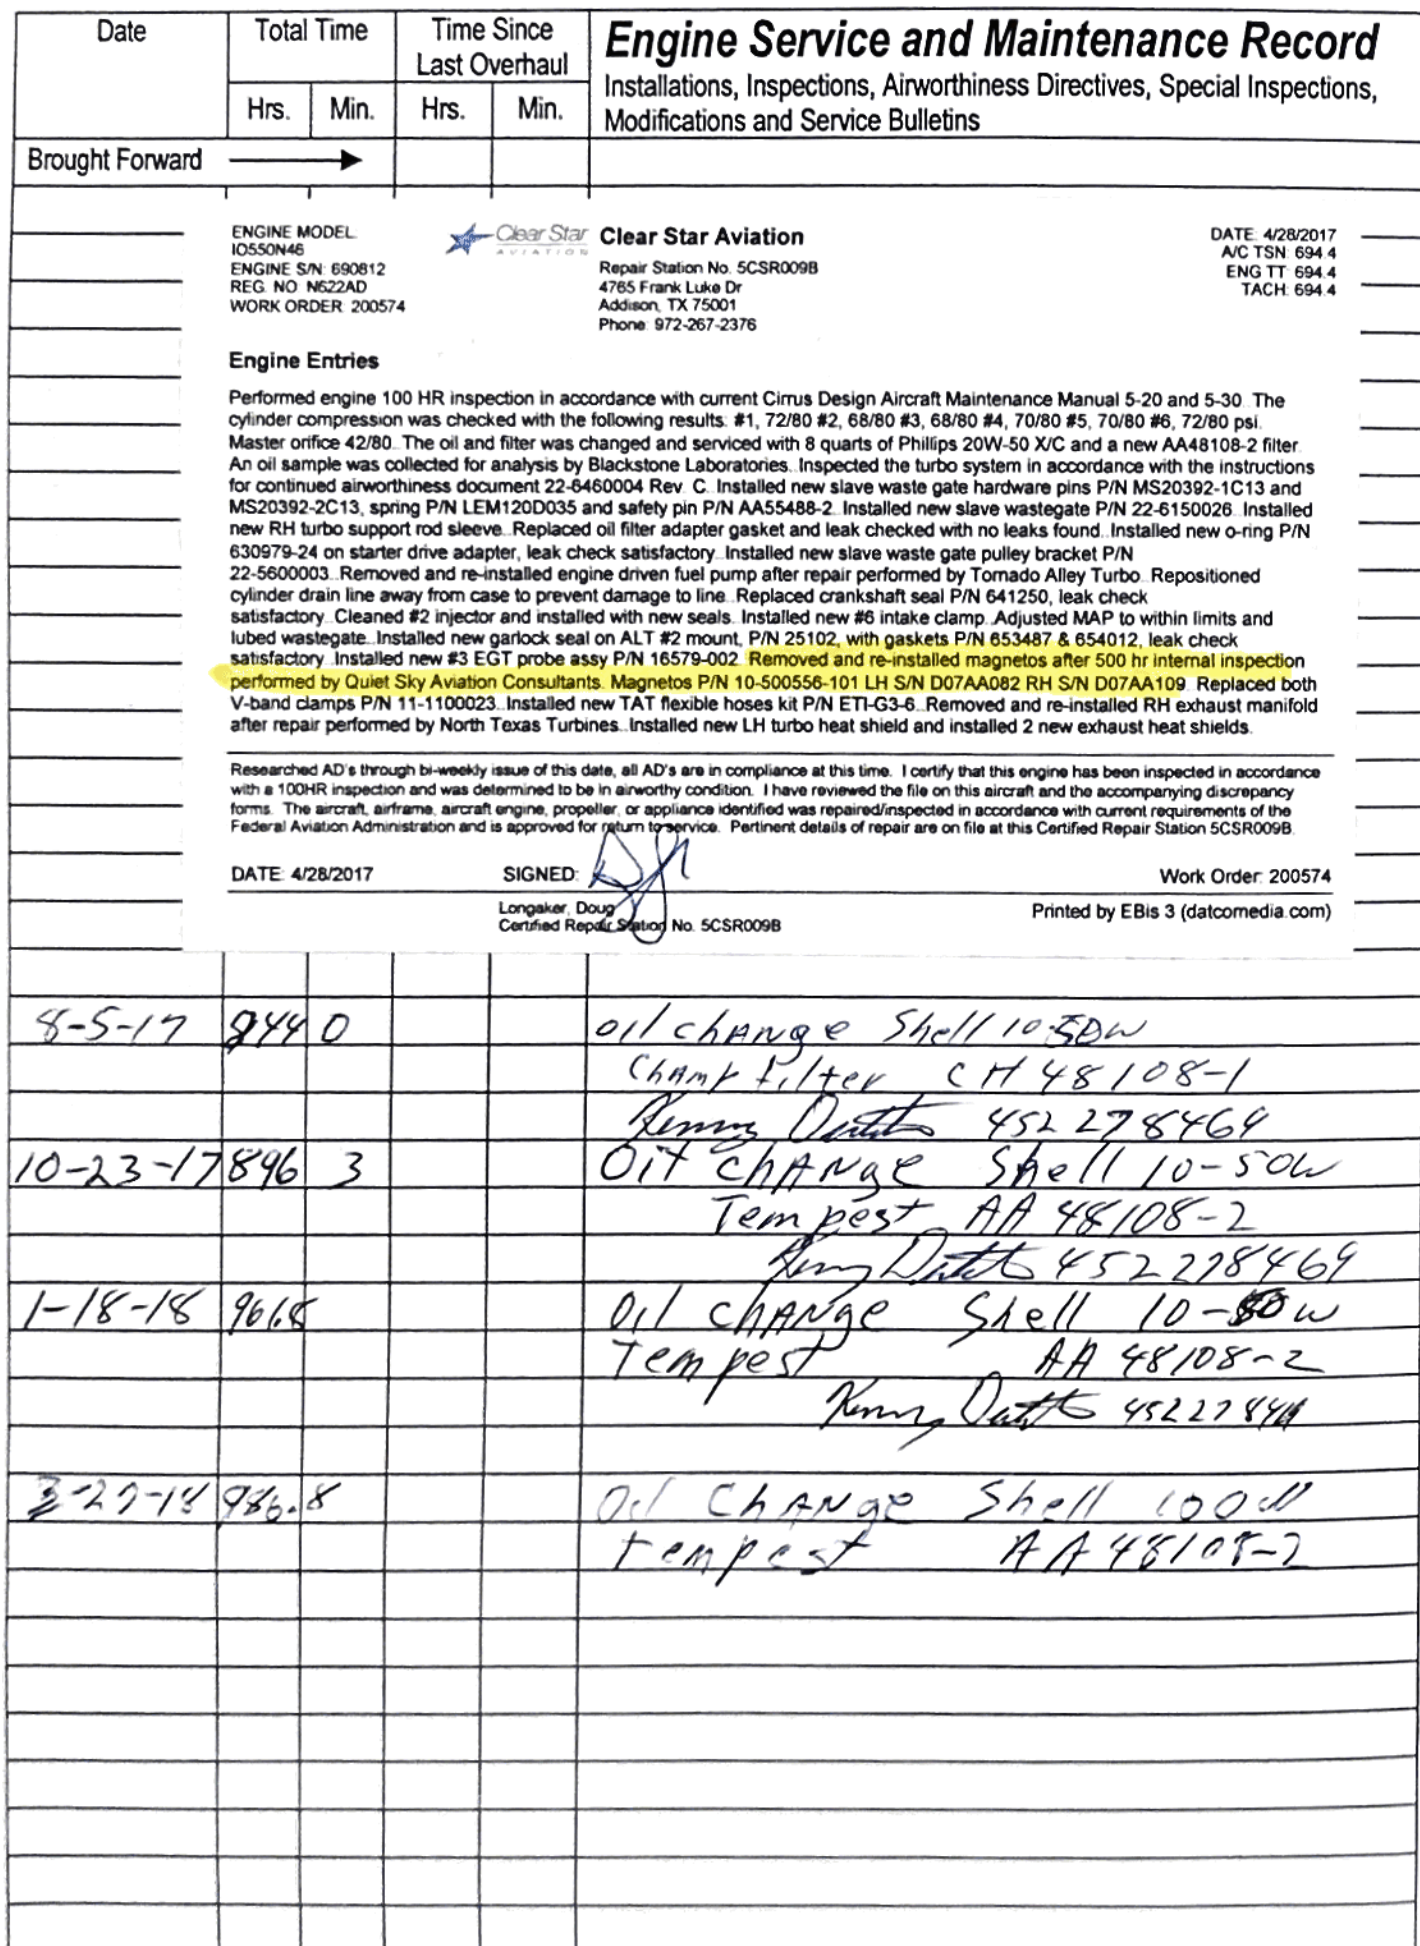 Date
Total Time
Time Since
Last Overhaul
Engine Service and Maintenance Record
Installations, Inspections, Airworthiness Directives, Special Inspections,
Modifications and Service Bulletins
Hrs. Min. Hrs. Min.
Brought Forward
ENGINE MODEL
IO550N46
ENGINE S/N: 690812
REG. NO N622AD
WORK ORDER: 200574
Clear Star
AVIATION
Clear Star Aviation
Repair Station No. 5CSR009B
4765 Frank Luke Dr
Addison, TX 75001
Phone: 972-267-2376
DATE: 4/28/2017
A/C TSN: 694.4
ENG TT: 694.4
TACH: 694.4
Engine Entries
Performed engine 100 HR inspection in accordance with current Cirrus Design Aircraft Maintenance Manual 5-20 and 5-30. The
cylinder compression was checked with the following results: #1, 72/80 #2, 68/80 #3, 68/80 #4, 70/80 #5, 70/80 #6, 72/80 psi.
Master orifice 42/80. The oil and filter was changed and serviced with 8 quarts of Phillips 20W-50 X/C and a new AA48108-2 filter.
An oil sample was collected for analysis by Blackstone Laboratories. Inspected the turbo system in accordance with the instructions
for continued airworthiness document 22-6460004 Rev. C. Installed new slave waste gate hardware pins P/N MS20392-1C13 and
MS20392-2C13, spring P/N LEM120D035 and safety pin P/N AA55488-2. Installed new slave wastegate P/N 22-6150026. Installed
new RH turbo support rod sleeve. Replaced oil filter adapter gasket and leak checked with no leaks found. Installed new o-ring P/N
630979-24 on starter drive adapter, leak check satisfactory. Installed new slave waste gate pulley bracket P/N
22-5600003. Removed and re-installed engine driven fuel pump after repair performed by Tornado Alley Turbo. Repositioned
cylinder drain line away from case to prevent damage to line. Replaced crankshaft seal P/N 641250, leak check
satisfactory. Cleaned #2 injector and installed with new seals. Installed new #6 intake clamp. Adjusted MAP to within limits and
lubed wastegate. Installed new garlock seal on ALT #2 mount, P/N 25102, with gaskets P/N 653487 & 654012, leak check
satisfactory. Installed new #3 EGT probe assy P/N 16579-002. Removed and re-installed magnetos after 500 hr internal inspection
performed by Quiet Sky Aviation Consultants. Magnetos P/N 10-500556-101 LH S/N D07AA082 RH S/N D07AA109. Replaced both
V-band clamps P/N 11-1100023. Installed new TAT flexible hoses kit P/N ETI-G3-6. Removed and re-installed RH exhaust manifold
after repair performed by North Texas Turbines. Installed new LH turbo heat shield and installed 2 new exhaust heat shields.
Researched AD's through bi-weekly issue of this date, all AD's are in compliance at this time. I certify that this engine has been inspected in accordance
with a 100HR inspection and was determined to be in airworthy condition. I have reviewed the file on this aircraft and the accompanying discrepancy
forms. The aircraft, airframe, aircraft engine, propeller, or appliance identified was repaired/inspected in accordance with current requirements of the
Federal Aviation Administration and is approved for return to service. Pertinent details of repair are on file at this Certified Repair Station 5CSR009B.
DATE: 4/28/2017 SIGNED: Work Order: 200574
Longaker, Doug
Certified Repair Station No. 5CSR009B
Printed by EBis 3 (datcomedia.com)
8-5-17 844 0 oil change Shell 10-50W
Champ filter CH 48108-1
Kenny 452278469
10-23-17 896 3 Oil change Shell 10-50W
Tempest AA 48108-2
Kenny 452278469
1-18-18 961.8 Oil change Shell 10-50W
Tempest AA 48108-2
Kenny
3-27-18 986.8 Oil Change Shell 100W
tempest AA48108-2